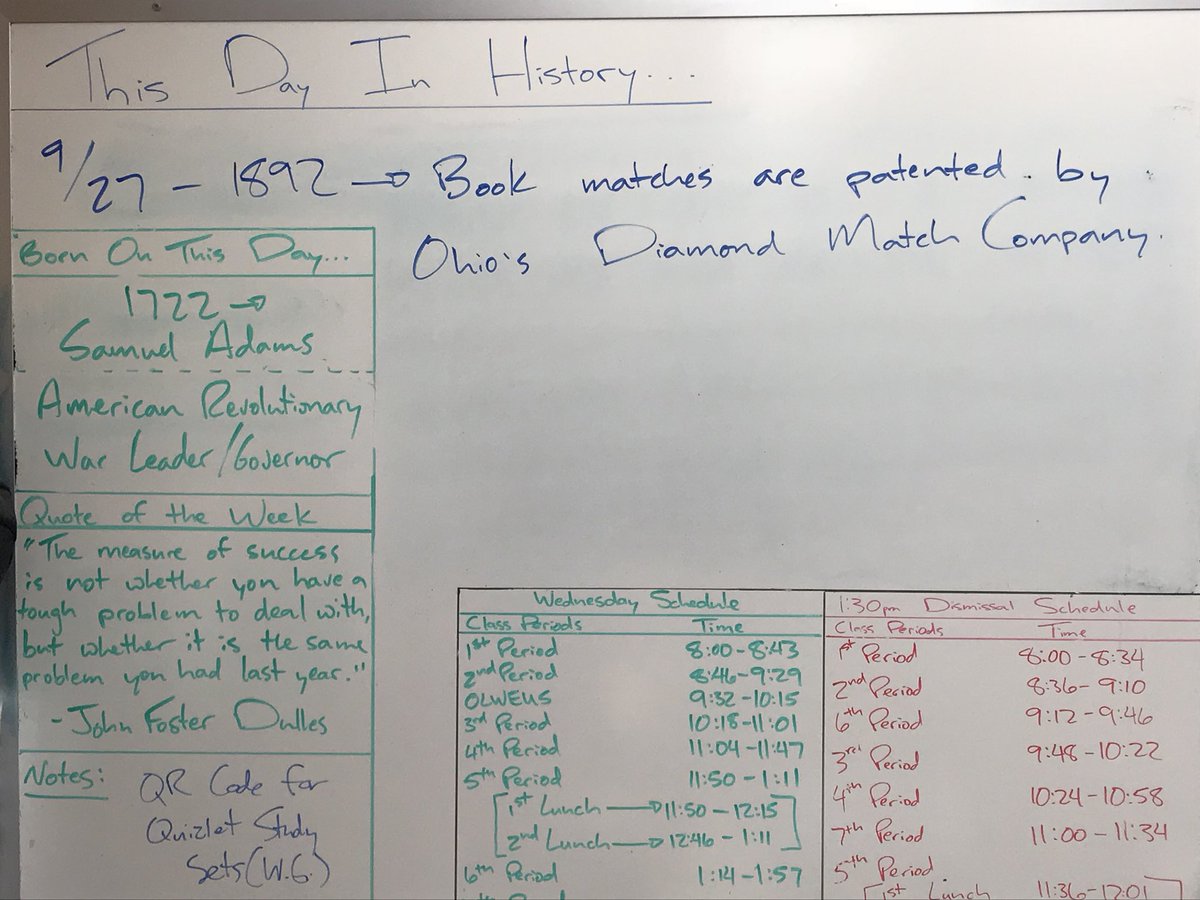 This Day In History...
9/27 - 1892 → Book matches are patented by
Ohio's Diamond Match Company.
Born On This Day...
1722 →
Samuel Adams
American Revolutionary
War Leader/Governor
Quote of the Week
"The measure of success
is not whether you have a
tough problem to deal with,
but whether it is the same
problem you had last year."
- John Foster Dulles
Notes: QR Code for
Quizlet Study
Sets (W.G.)
Wednesday Schedule
Class Periods Time
1st Period 8:00-8:43
2nd Period 8:46-9:29
OLWEUS 9:32-10:15
3rd Period 10:18-11:01
4th Period 11:04-11:47
5th Period 11:50-1:11
1st Lunch → 11:50-12:15
2nd Lunch → 12:46-1:11
6th Period 1:14-1:57
1:30pm Dismissal Schedule
Class Periods Time
1st Period 8:00-8:34
2nd Period 8:36-9:10
6th Period 9:12-9:46
3rd Period 9:48-10:22
4th Period 10:24-10:58
7th Period 11:00-11:34
5th Period
1st Lunch 11:36-12:01